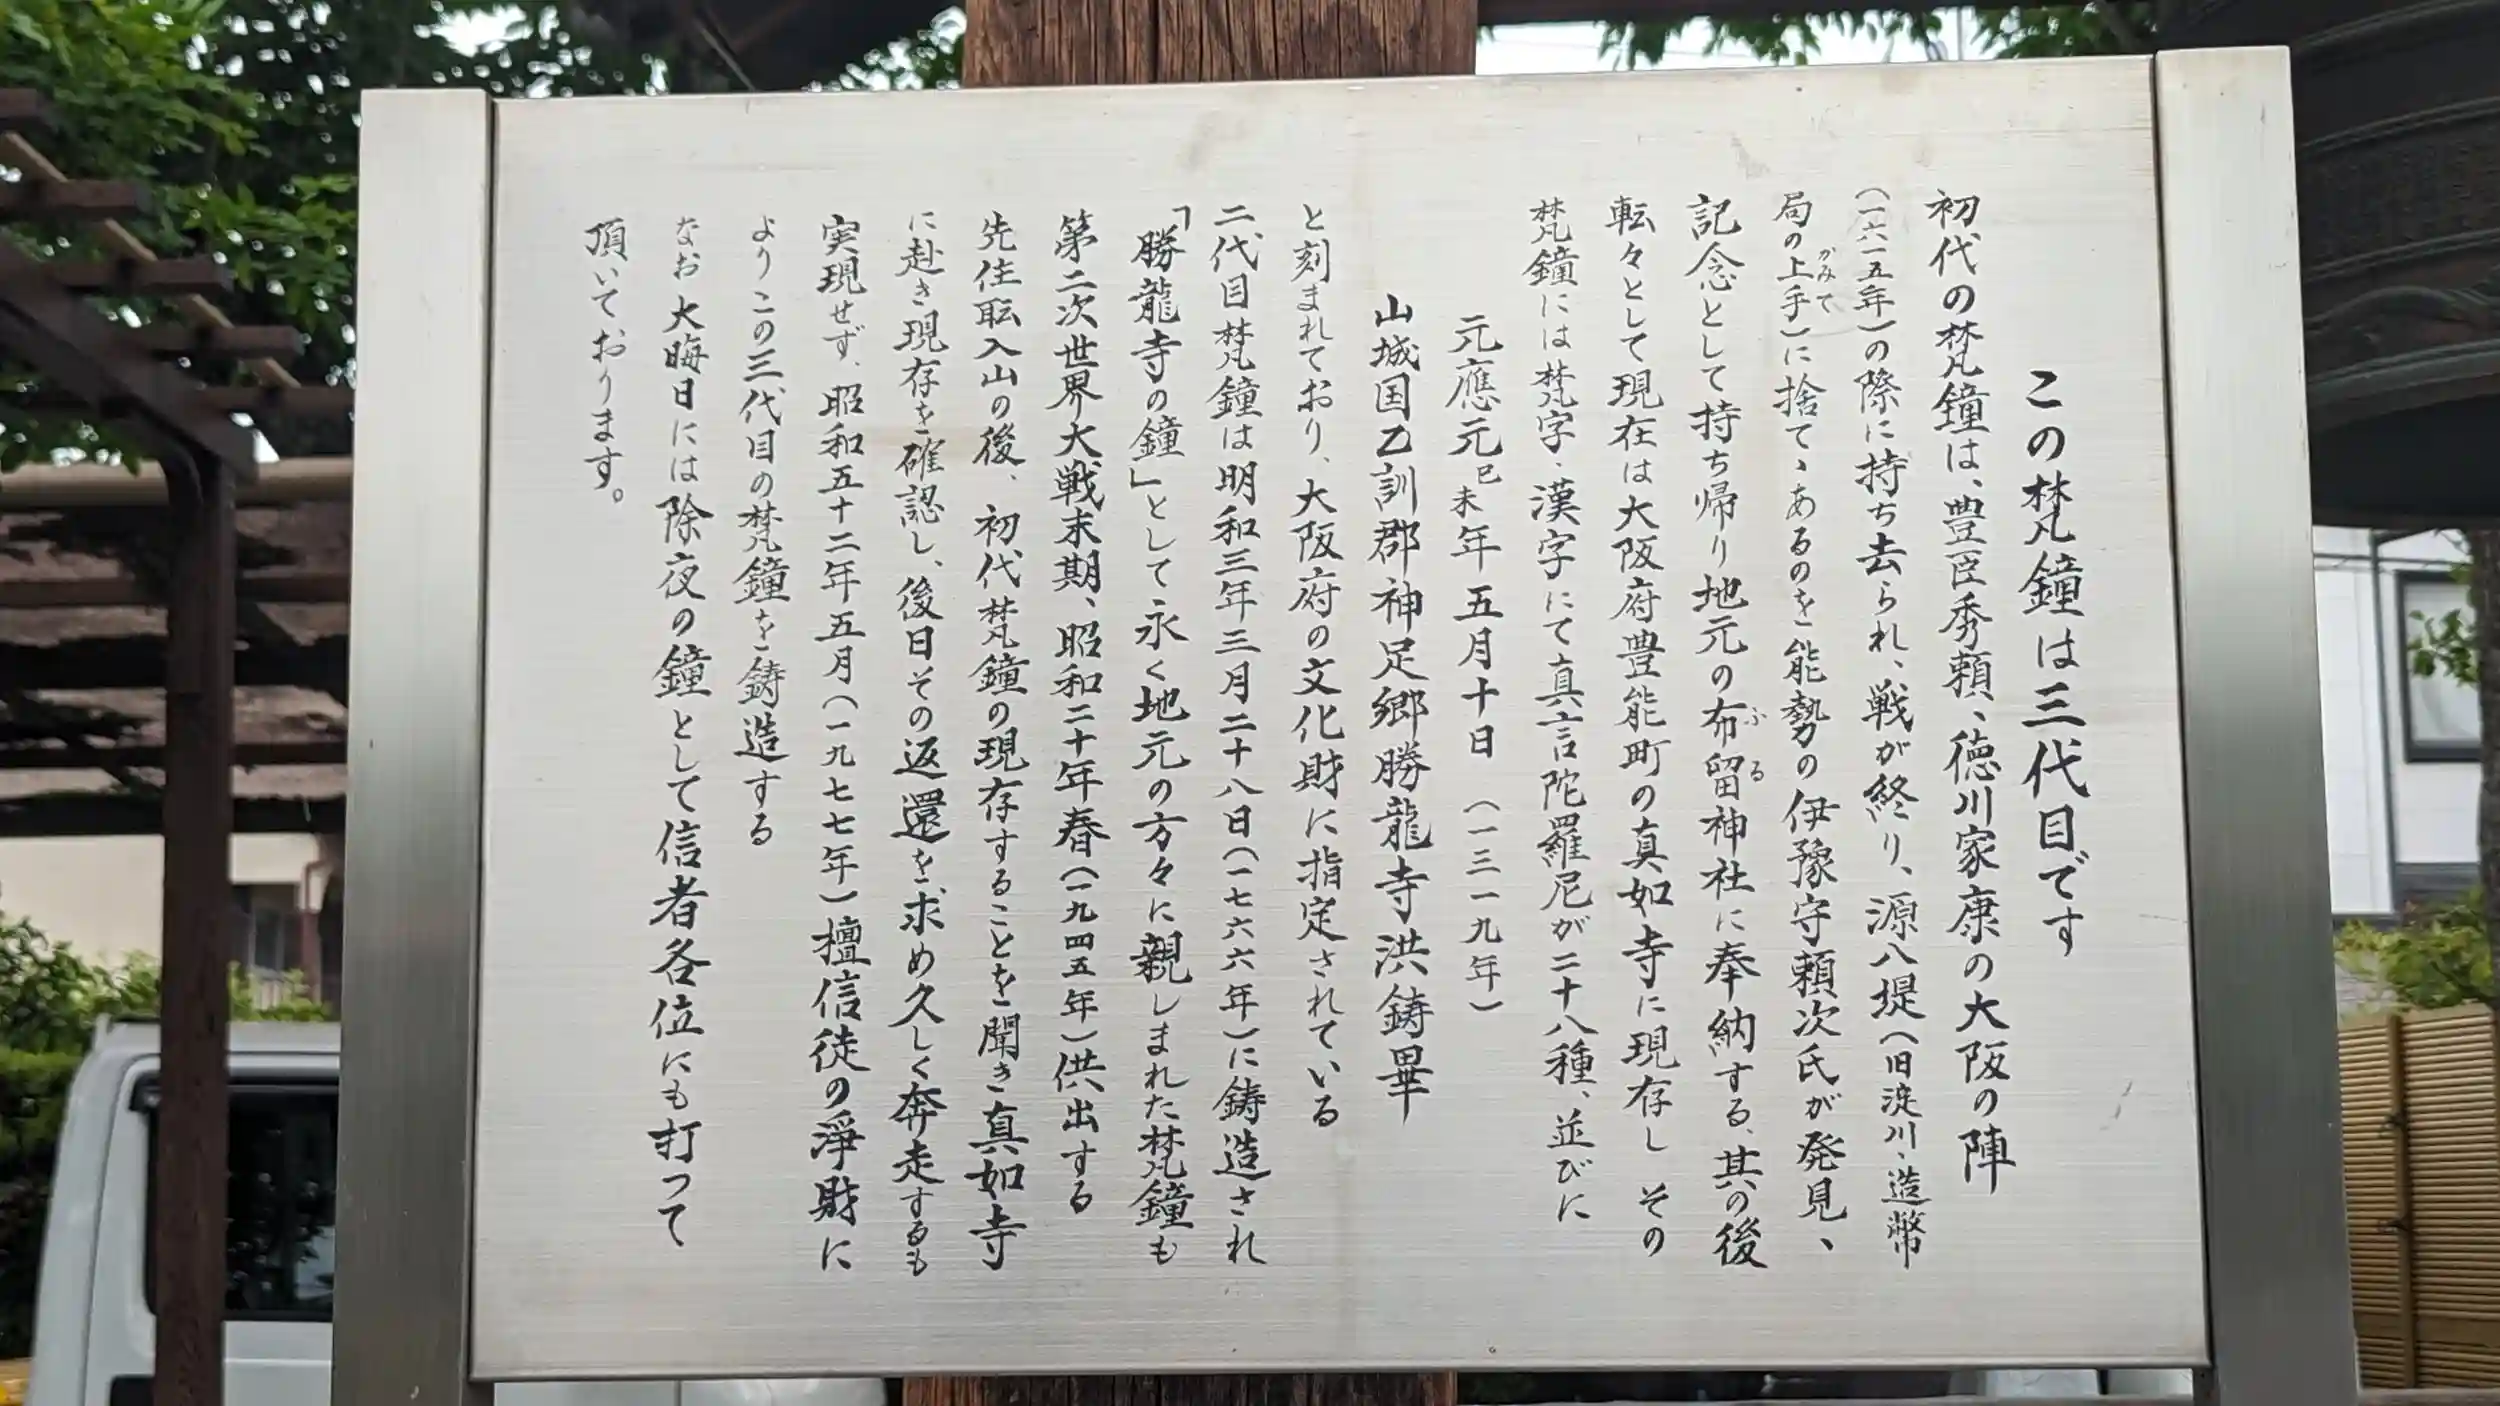 この梵鐘は三代目です
初代の梵鐘は、豊臣秀頼、徳川家康の大阪の陣
(一六一五年)の際に持ち去られ、戦が終り、源八堤(旧淀川、造幣
局の上手)に捨て、あるのを能勢の伊豫守頼次氏が発見、
かみて
記念として持ち帰り地元の布留神社に奉納する、其の後
ふる
転々として現在は大阪府豊能町の真如寺に現存し その
梵鐘には梵字、漢字にて真言陀羅尼が二十八種、並びに
元應元己未年 五月十日 (一三一九年)
山城国乙訓郡神足郷勝龍寺洪鋳畢
と刻まれており、大阪府の文化財に指定されている
二代目梵鐘は明和三年三月二十八日(一七六六年)に鋳造され
「勝龍寺の鐘」として永く地元の方々に親しまれた梵鐘も
第二次世界大戦末期、昭和二十年春(一九四五年)供出する
先住耘入山の後、初代梵鐘の現存することを聞き真如寺
に赴き現存を確認し、後日その返還を求め久しく奔走するも
実現せず、昭和五十二年五月(一九七七年)檀信徒の淨財に
よりこの三代目の梵鐘を鋳造する
なお大晦日には除夜の鐘として信者各位にも打って
頂いております。